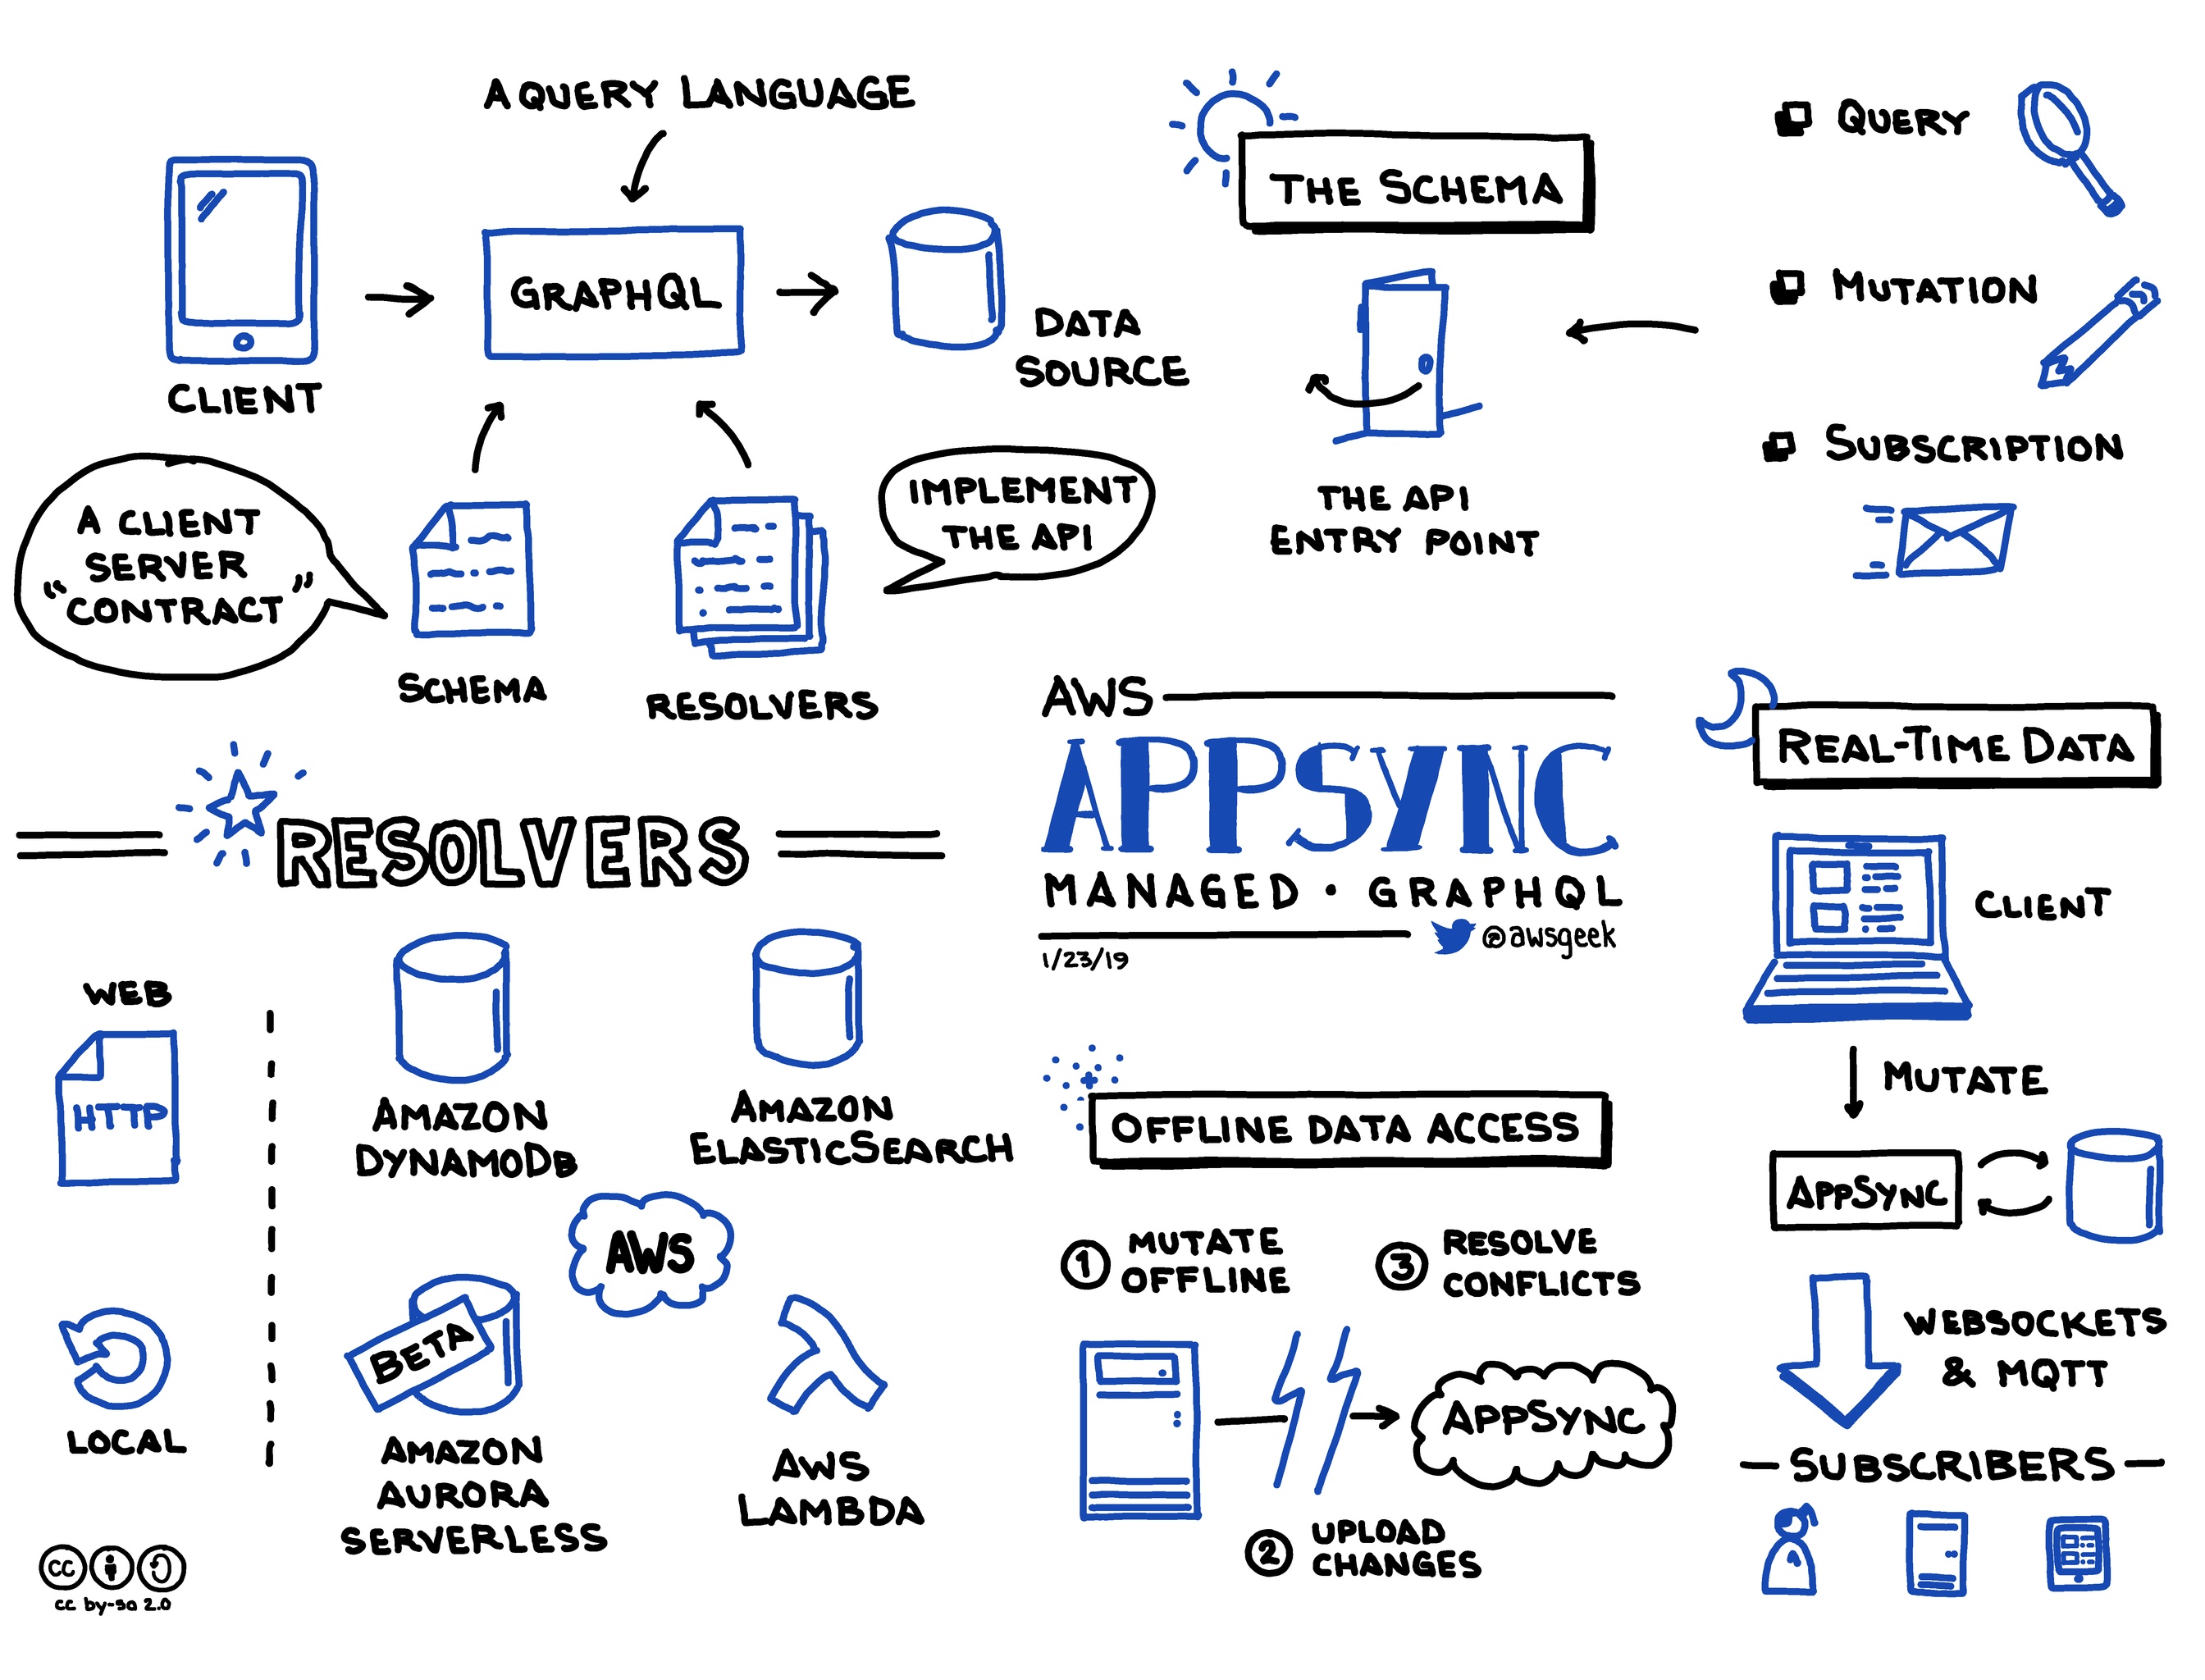 A QUERY LANGUAGE
GRAPHQL
CLIENT
DATA
SOURCE
A CLIENT
SERVER
"CONTRACT"
SCHEMA
IMPLEMENT
THE API
RESOLVERS
THE SCHEMA
THE API
ENTRY POINT
QUERY
MUTATION
SUBSCRIPTION
AWS
APPSYNC
MANAGED • GRAPHQL
@awsgeek
1/23/19
RESOLVERS
WEB
HTTP
LOCAL
AMAZON
DYNAMODB
AMAZON
ELASTICSEARCH
AWS
BETA
AMAZON
AURORA
SERVERLESS
AWS
LAMBDA
cc
cc by-sa 2.0
OFFLINE DATA ACCESS
1 MUTATE
OFFLINE
3 RESOLVE
CONFLICTS
APPSYNC
2 UPLOAD
CHANGES
REAL-TIME DATA
CLIENT
MUTATE
APPSYNC
WEBSOCKETS
& MQTT
SUBSCRIBERS